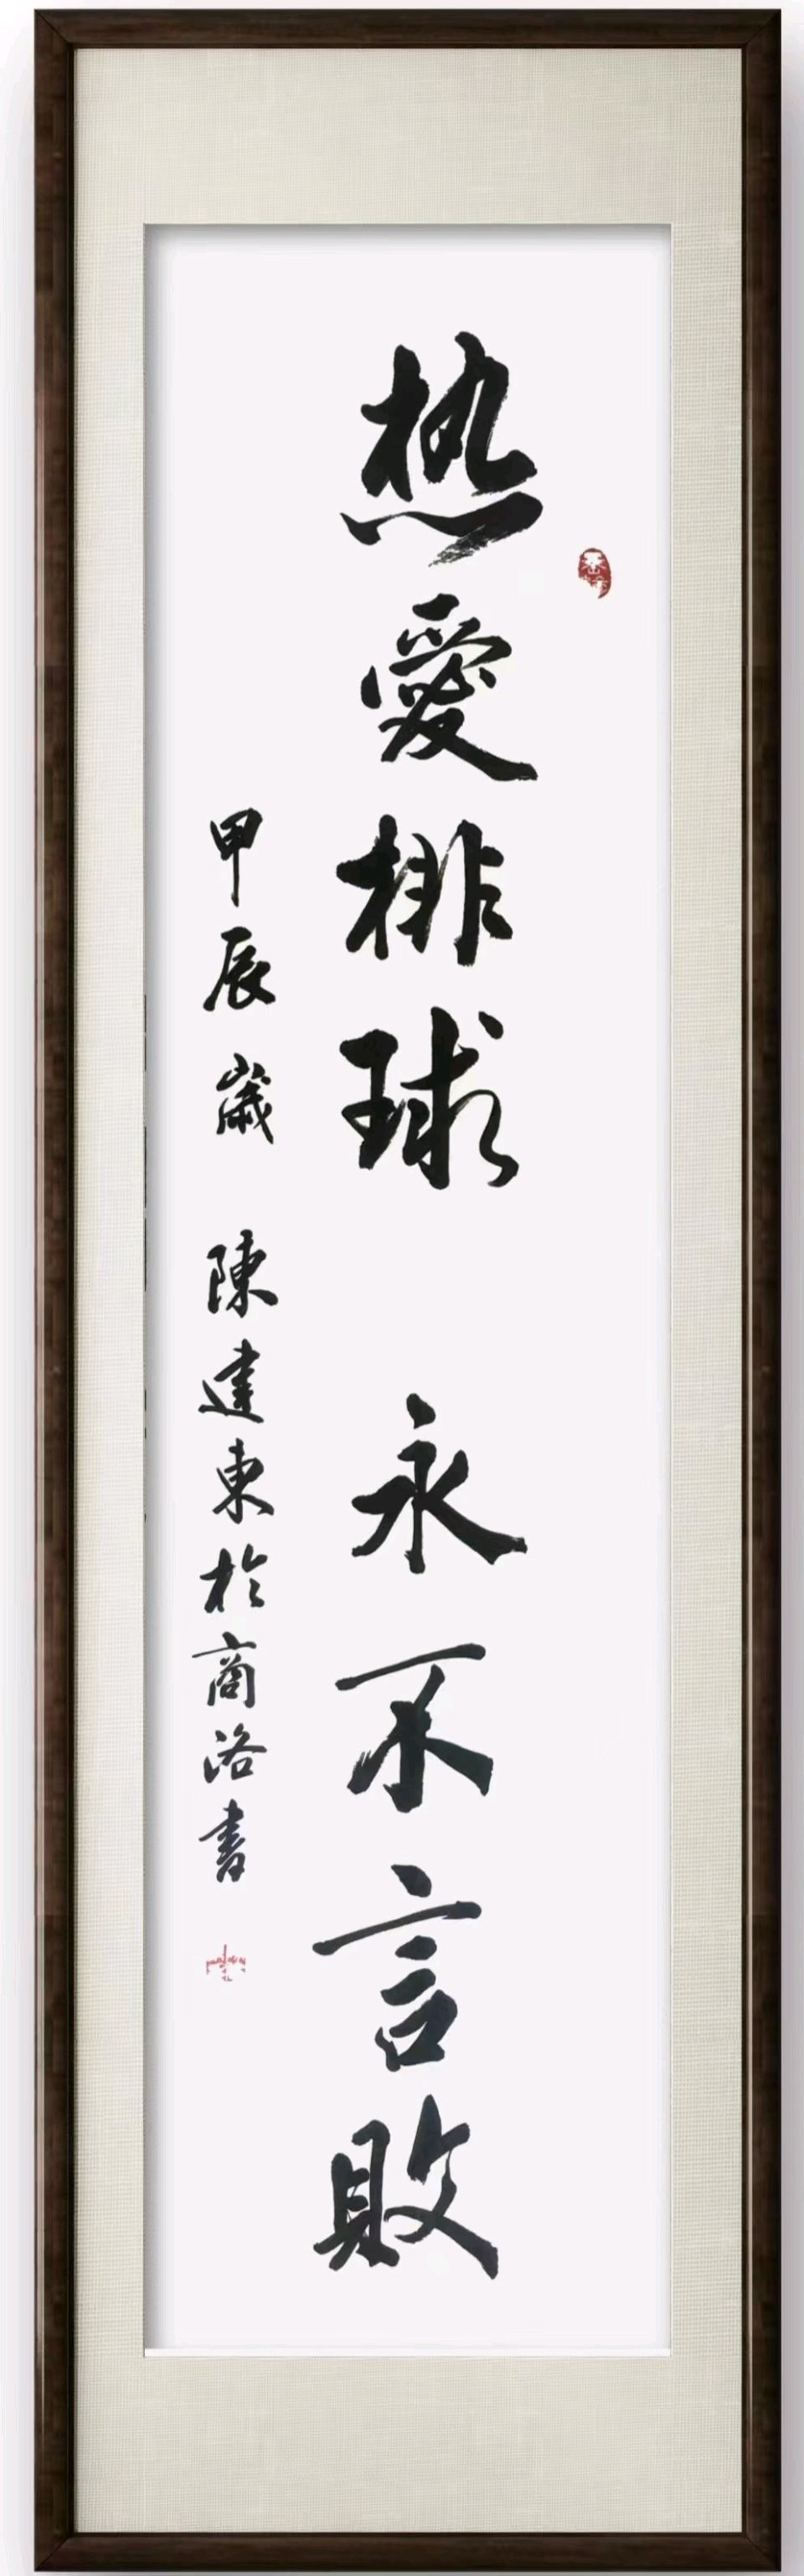 热愛排球 永不言敗
甲辰歲 陳建東於商洛書